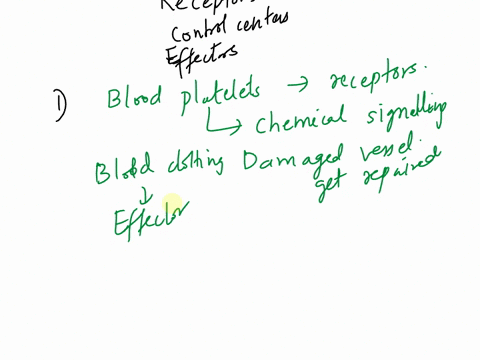 Receptors
Control centers
Effectors
1) Blood platelets → receptors.
↳ Chemical signalling
Blood clotting Damaged vessel.
get repaired
↓
Effector